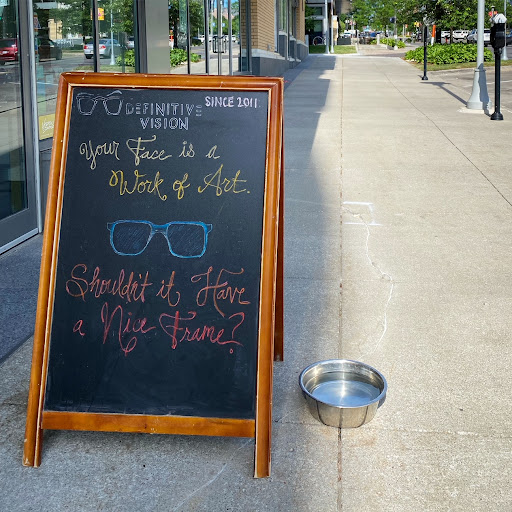 DEFINITIVE VISION SINCE 2011
Your Face is a
Work of Art.
Shouldn't it Have
a Nice Frame?